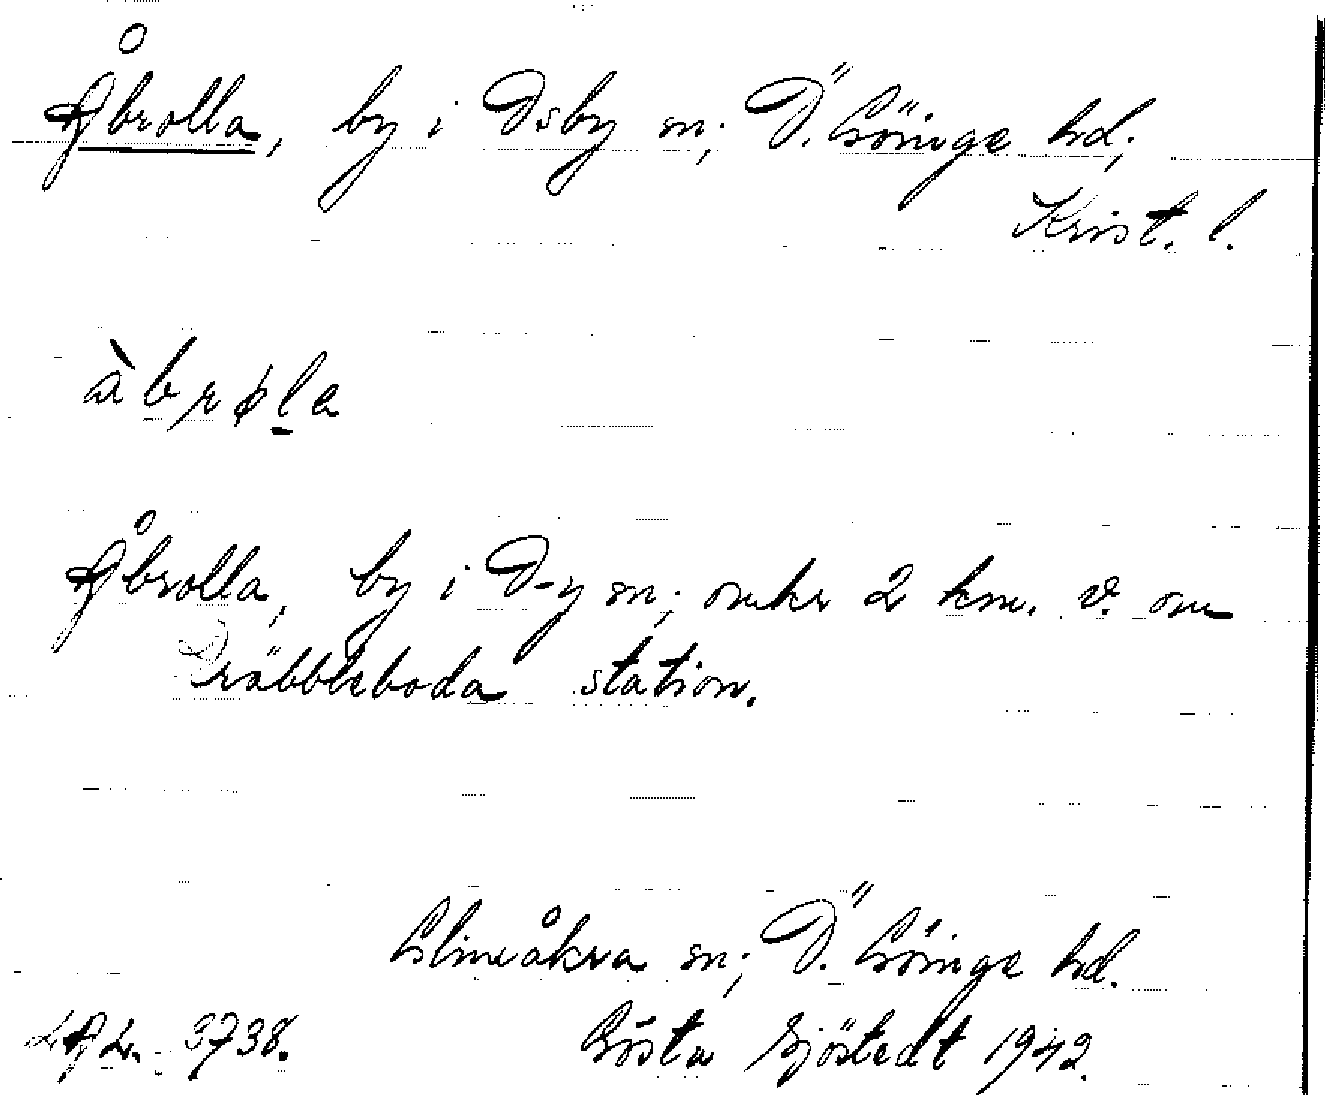 Åbrolla, by i Osby sn; Ö. Göinge hd;
Krist. l.
àbrøla
Åbrolla, by i O-y sn; omkr 2 km. v. om
Dräbbleboda station.
Glimåkra sn; Ö. Göinge hd.
LAL. 3738. Gösta Sjöstedt 1942.